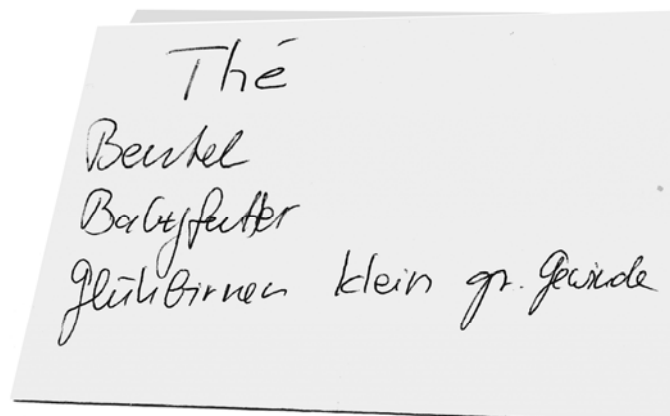 Thé
Beutel
Babyfutter
Glühbirnen klein gr. Gewinde